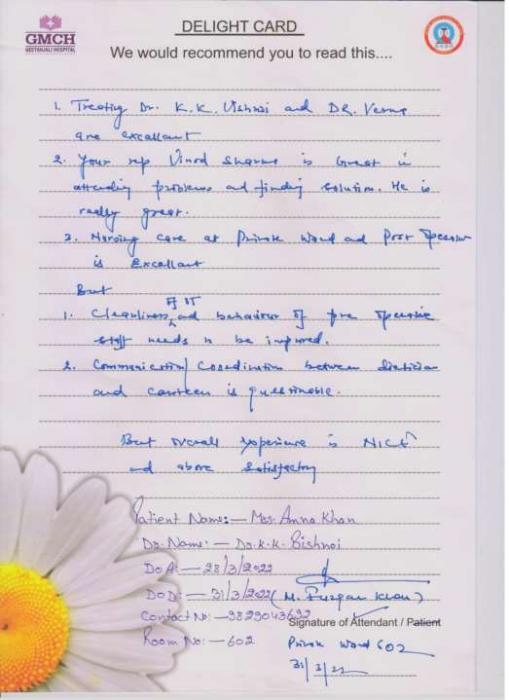 GMCH
GEETANJALI HOSPITAL
DELIGHT CARD
We would recommend you to read this....
1. Treating Dr. K.K. Vishnoi and DR. Verma
are excellant
2. Your rep Vinod Sharma is Great in
attending problems and finding solution. He is
really great.
3. Nursing care at Private Ward and Post Operative
is Excellant
But
of OT
1. Cleanliness and behaviour of pre operative
staff needs to be improved.
2. Communication/Coordination between dietician
and canteen is questionable.
But overall experience is NICE
and above Satisfactory
Patient Name:- Mrs. Amna Khan
Dr. Name:- Dr. K.K. Bishnoi
DoA:- 28/3/2022
DoD:- 31/3/2022 (M. Furqan Khan)
Contact No:-
Signature of Attendant / Patient
Room No:- 602
Private Ward 602
31/3/22